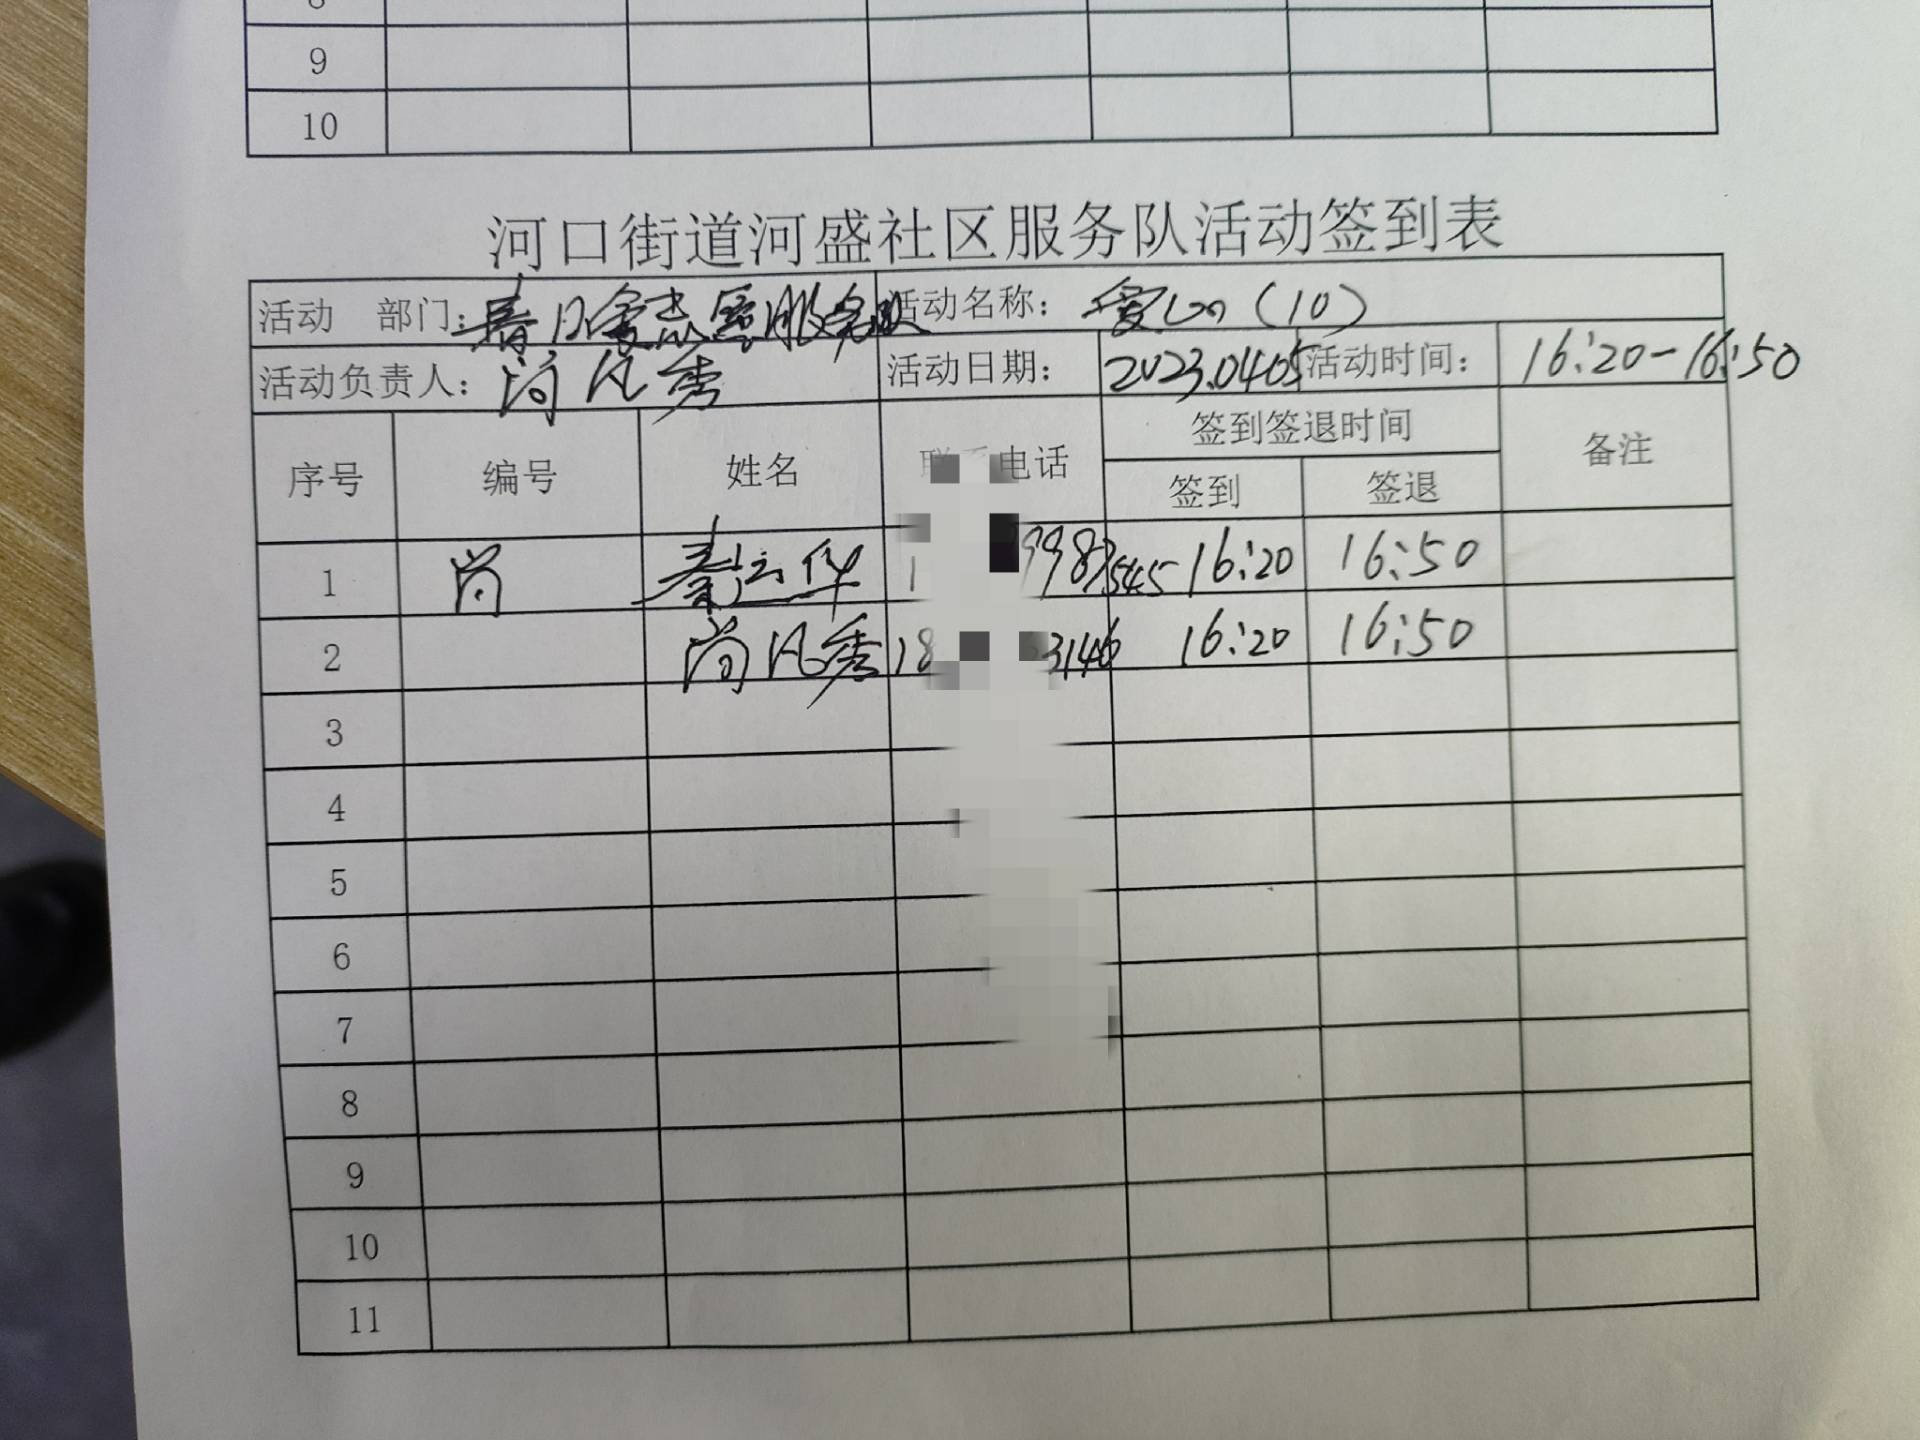 9
10
河口街道河盛社区服务队活动签到表
活动 部门: 春日爱志愿服务队 活动名称: 爱心(10)
活动负责人: 尚凡秀 活动日期: 2023.0405 活动时间: 16:20-16:50
序号 编号 姓名 电话 签到签退时间 备注
签到 签退
1 尚 秦运华 16:20 16:50
2 尚凡秀 18 3146 16:20 16:50
3
4
5
6
7
8
9
10
11